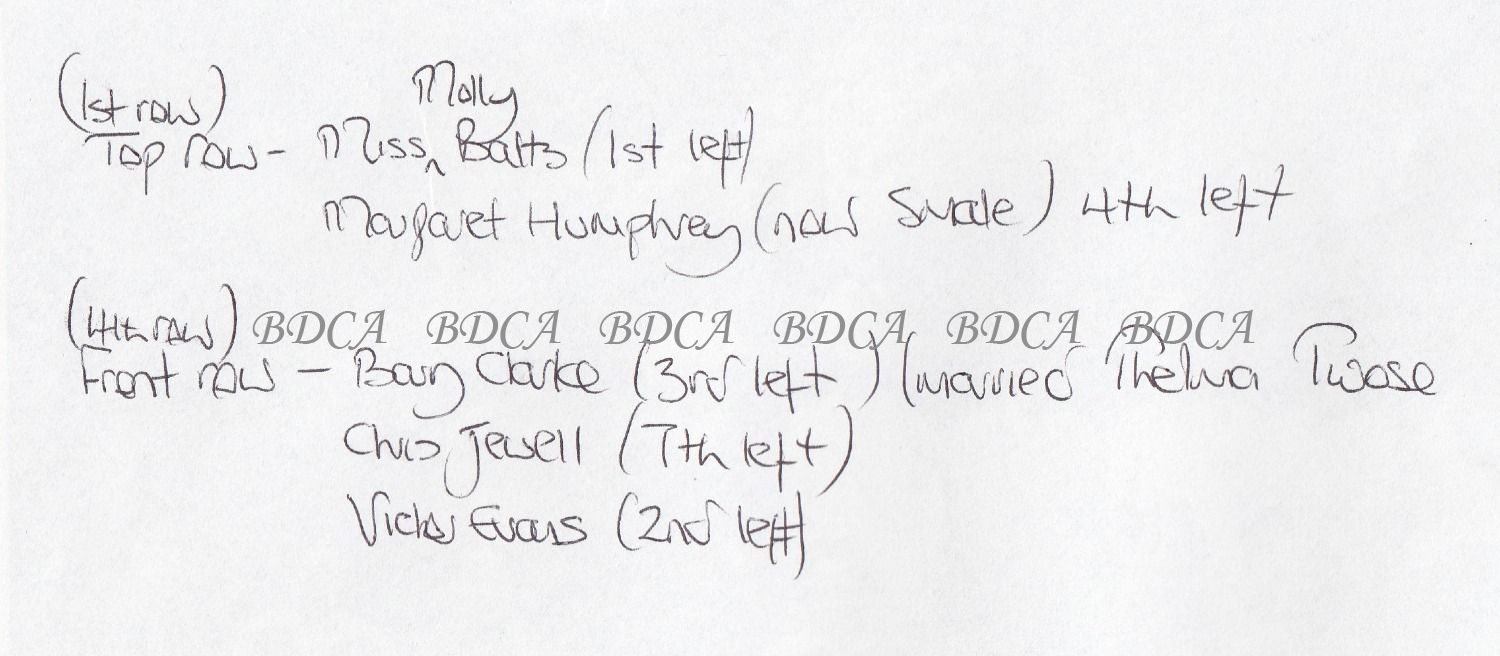 (1st row) Molly
Top row - Miss ^ Batts (1st left)
Margaret Humphrey (now Swale) 4th left
(4th row) BDCA BDCA BDCA BDCA BDCA BDCA
Front row - Barry Clarke (3rd left) (married Thelma Twose
Chris Jewell (7th left)
Evans (2nd left)